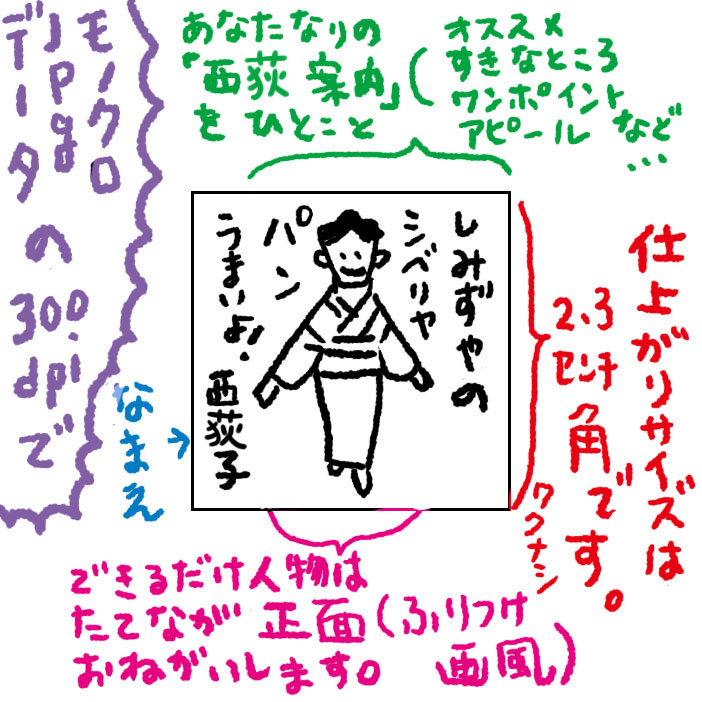 モノクロ
Jpg
データの
300.
dpiで
あなたなりの
「西荻案内」
をひとこと
(オススメ
すきなところ
ワンポイント
アピール など
…
しみずやの
シベリヤ
パン
うまいよ!
西荻子
なまえ
→
仕上がりサイズは
2.3
センチ
角です。
ワクナシ
できるだけ人物は
たてながが 正面(ふりつけ
おねがいします。 画風)